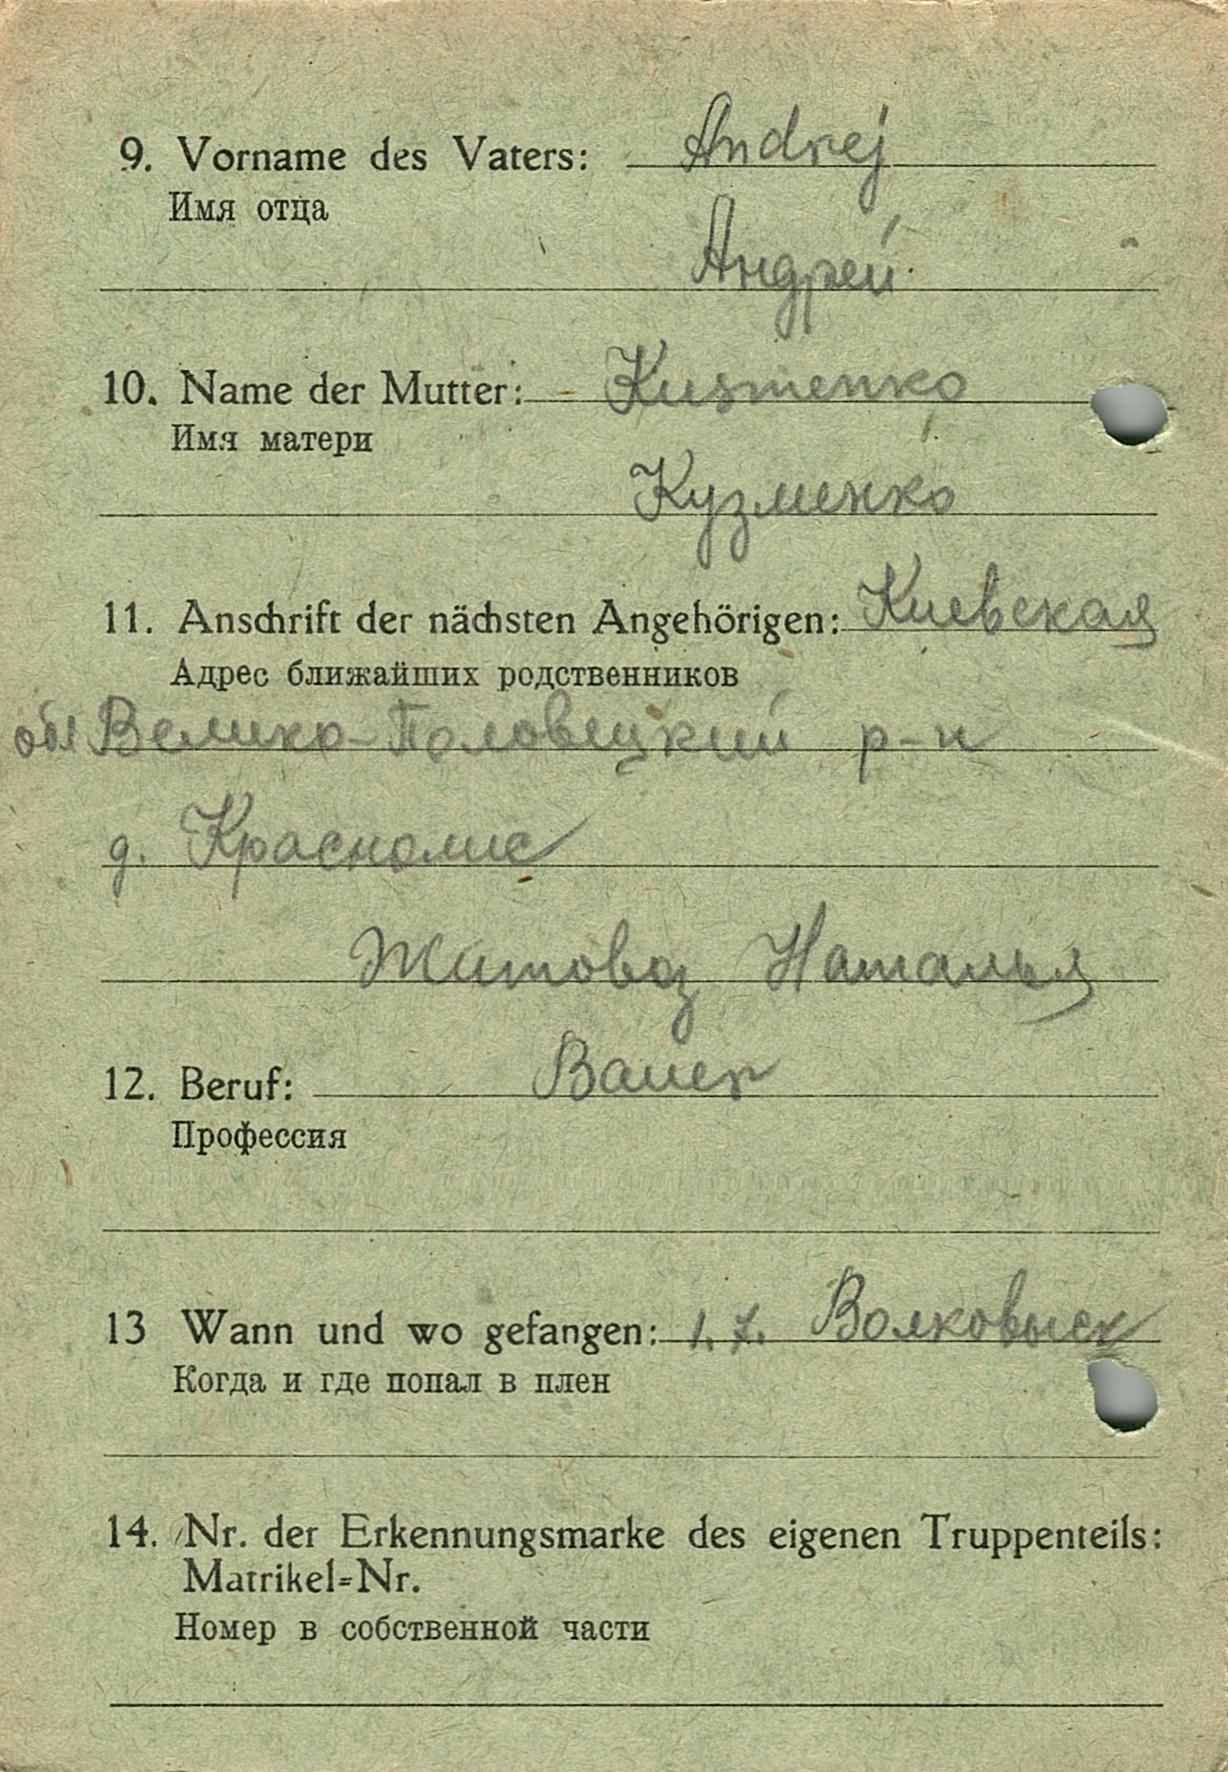 9. Vorname des Vaters: Andrej
Имя отца
Андрей
10. Name der Mutter: Kusmenko
Имя матери
Кузменко
11. Anschrift der nächsten Angehörigen: Киевская
Адрес ближайших родственников
обл Велико-Половецкий р-н
д. Краснолис
Наталья
12. Beruf: Bauer
Профессия
13 Wann und wo gefangen: 1.7. Волковыск
Когда и где попал в плен
14. Nr. der Erkennungsmarke des eigenen Truppenteils:
Matrikel=Nr.
Номер в собственной части